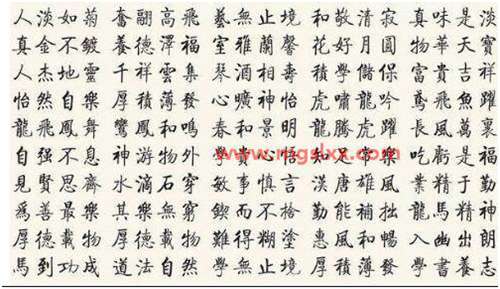 人淡如菊 奮翮高飛 藝無止境 和敬清寂 真味是淡
真金不鍍 養德澤福 室雅蘭馨 花好月圓 物華天寶
人杰地靈 千祥雲集 琴酒相壽 積學儲保 富貴吉祥
怡然自樂 厚積薄發 心曠神怡 虎嘯龍吟 鳶飛魚躍
龍飛鳳舞 鸞鳳和鳴 春和景明 龍騰虎躍 長風萬裏
自强不息 神游物外 學 知足常樂 吃虧是福
見賢思齊 水滴石穿 敏事慎言 漢唐雄風 業精于勤
為善最樂 其樂無窮 鍥而不捨 勤能補拙 龍馬精神
厚德載物 厚德載物 難得糊塗 惠風和暢 入幽出朗
馬到功成 道法自然 學無止境 厚積薄發 學書養志